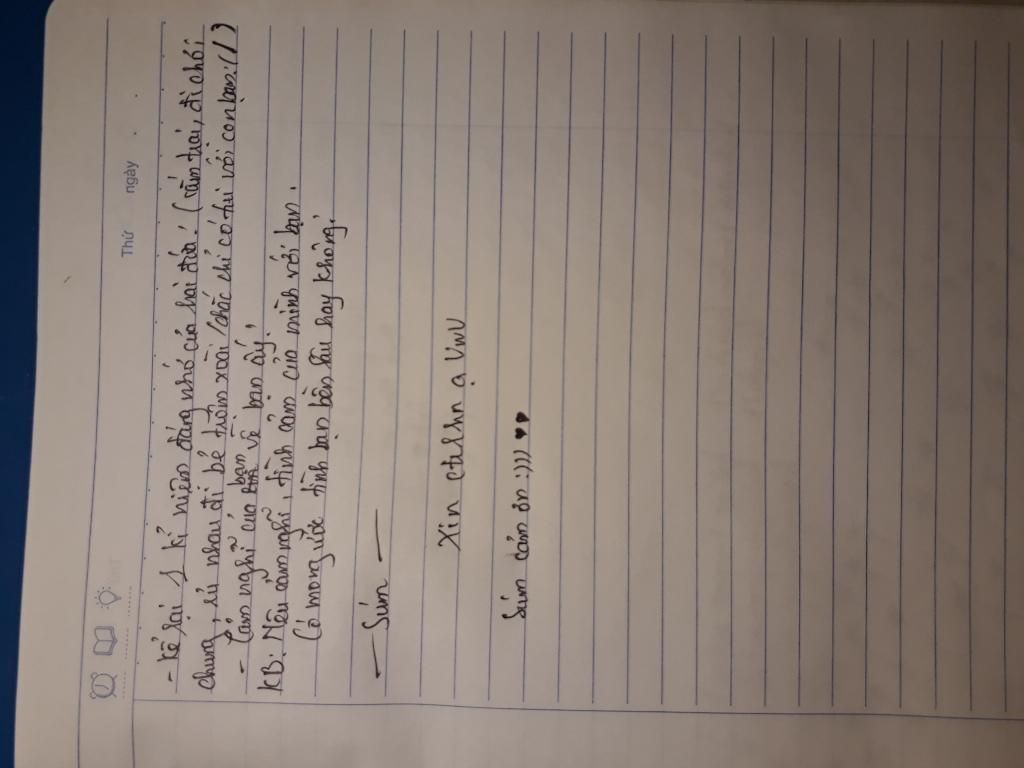 Thứ ngày
- Kể lại 1 kỉ niệm đáng nhớ của hai đứa. (nấm trái, đi chơi
chung, rủ nhau đi bẻ trộm xoài / chắc chỉ có tui với con bạn:(( )
- Cảm nghĩ của bạn về bạn ấy.
KB: Nêu cảm nghĩ, tình cảm của mình với bạn.
Có mong ước tình bạn bền lâu hay không.
— Sún —
Xin ctlhn ạ UwU
Sún cảm ơn :))) ♥♥